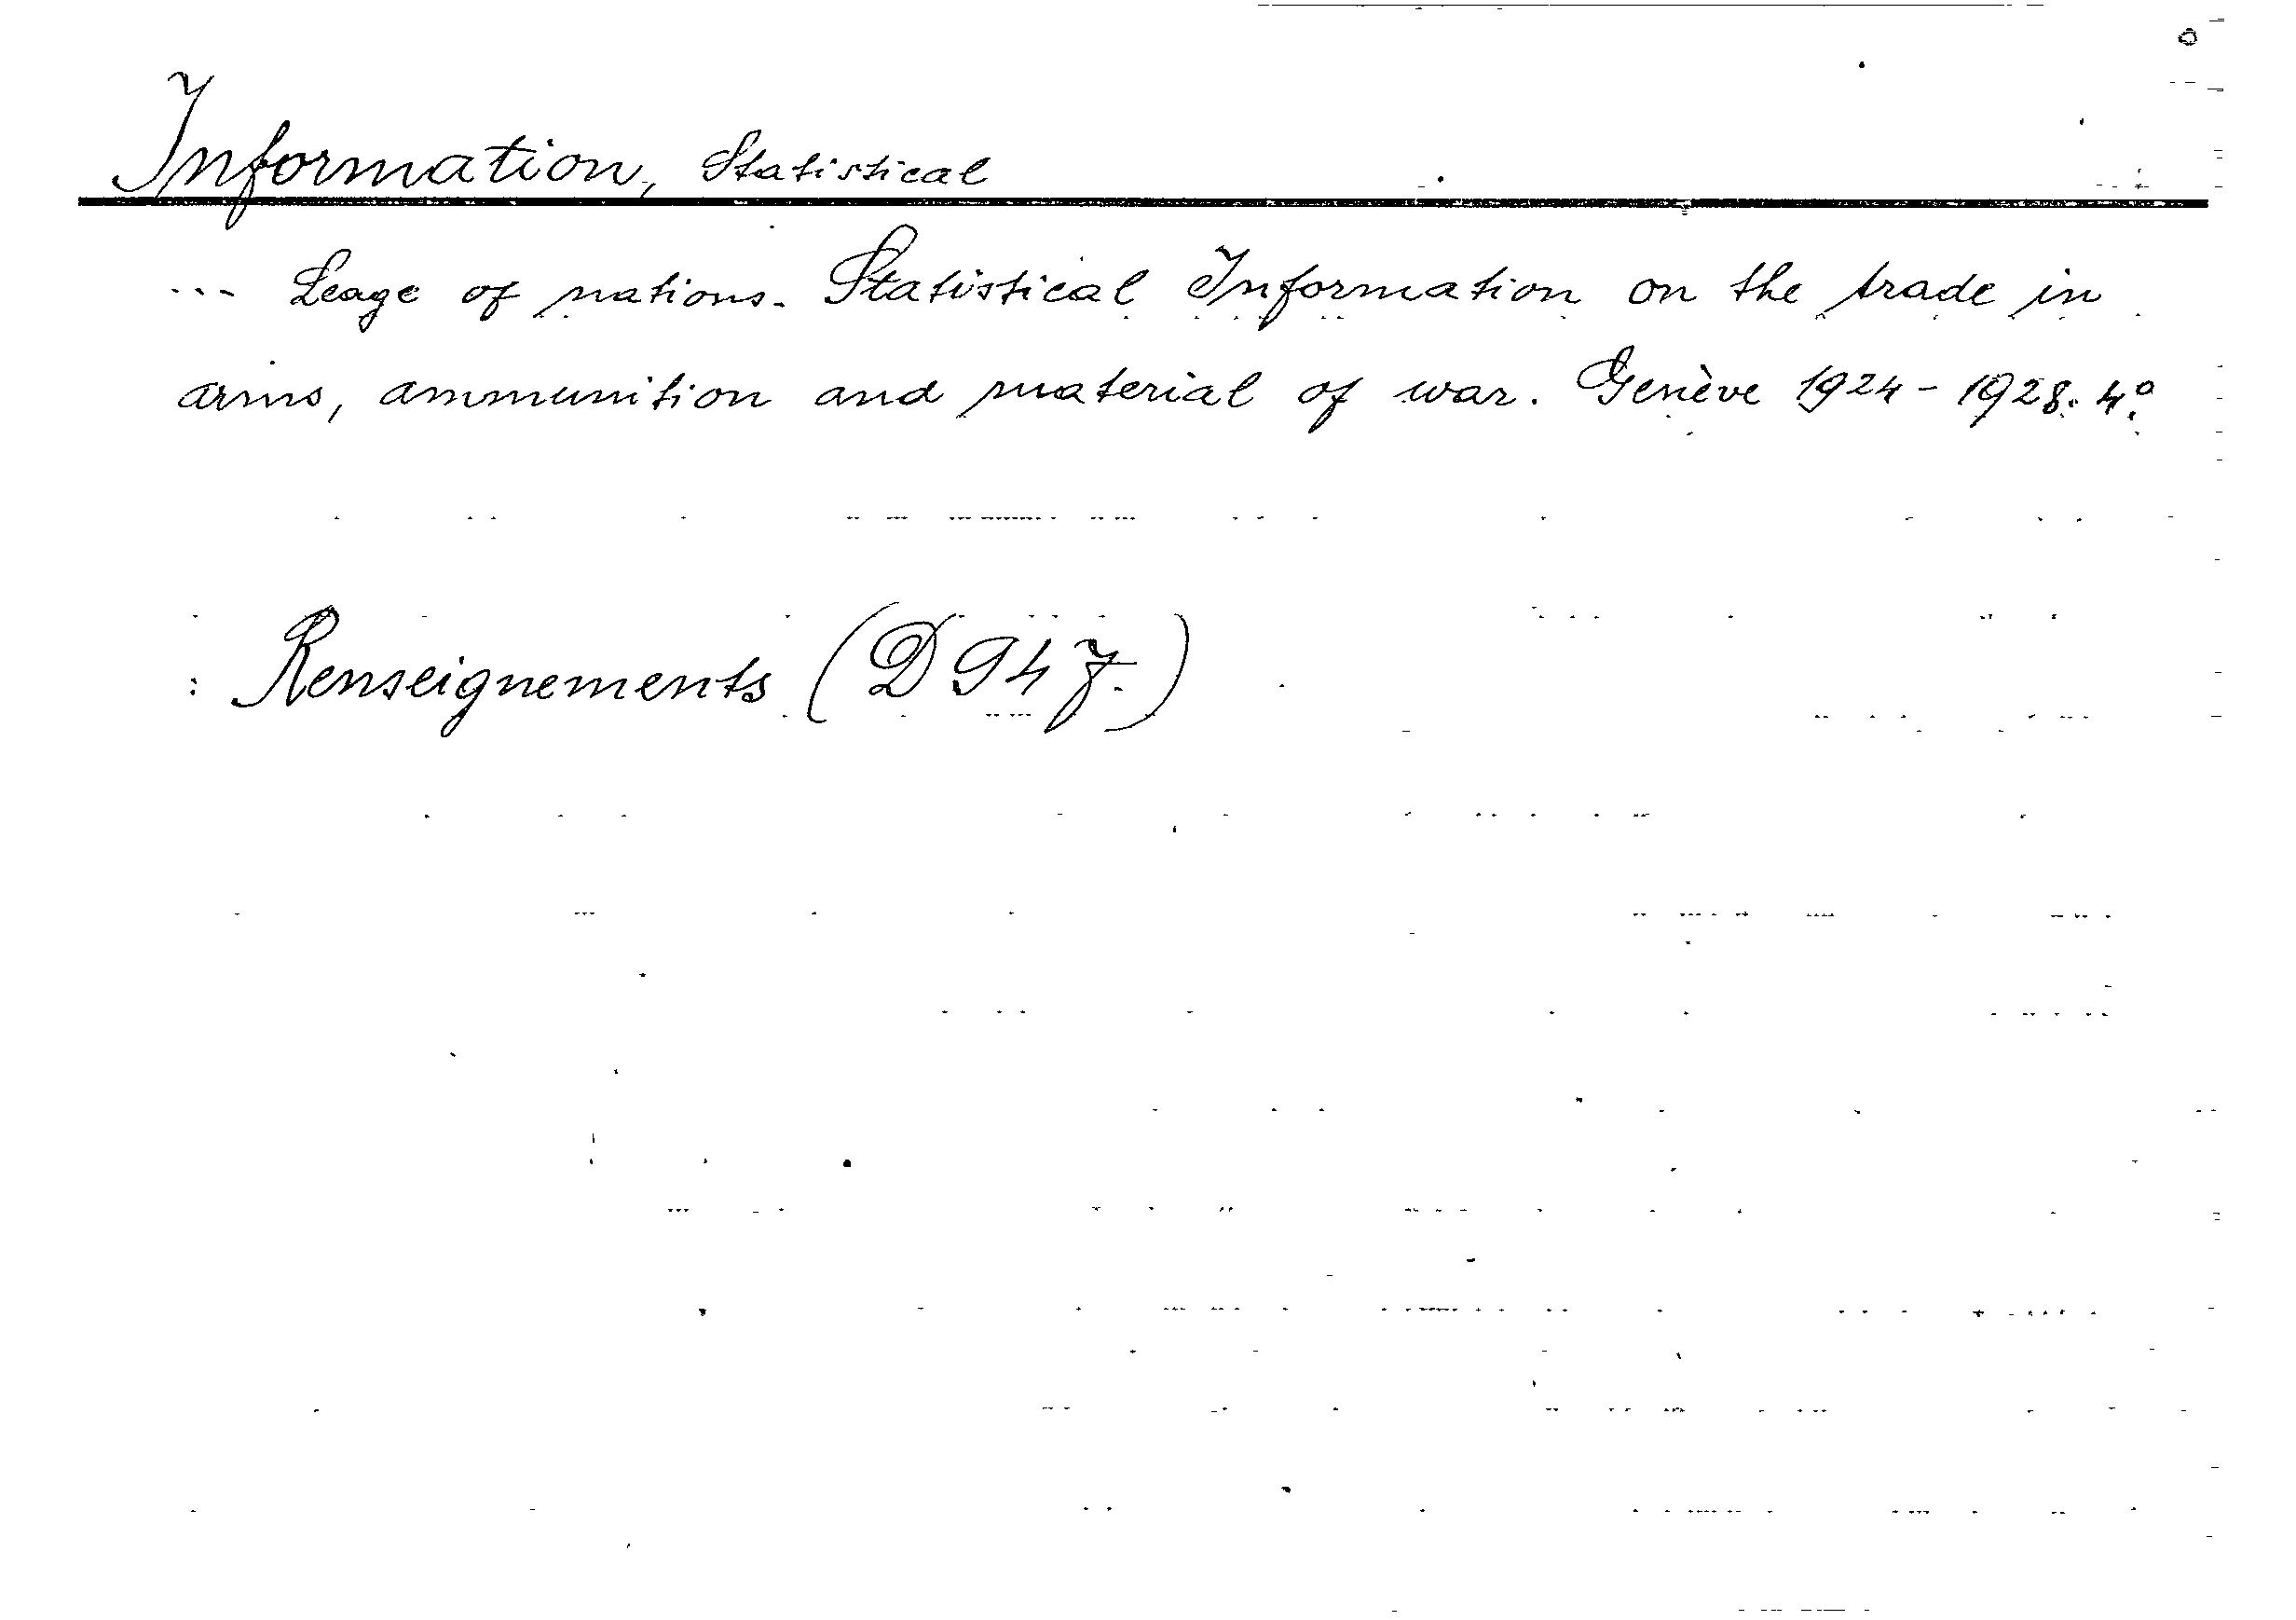 Information, Statistical
... Leage of nations. Statistical Information on the trade in
arms, ammunition and material of war. Genève 1924-1928. 4º.
: Renseignements (D 947.)